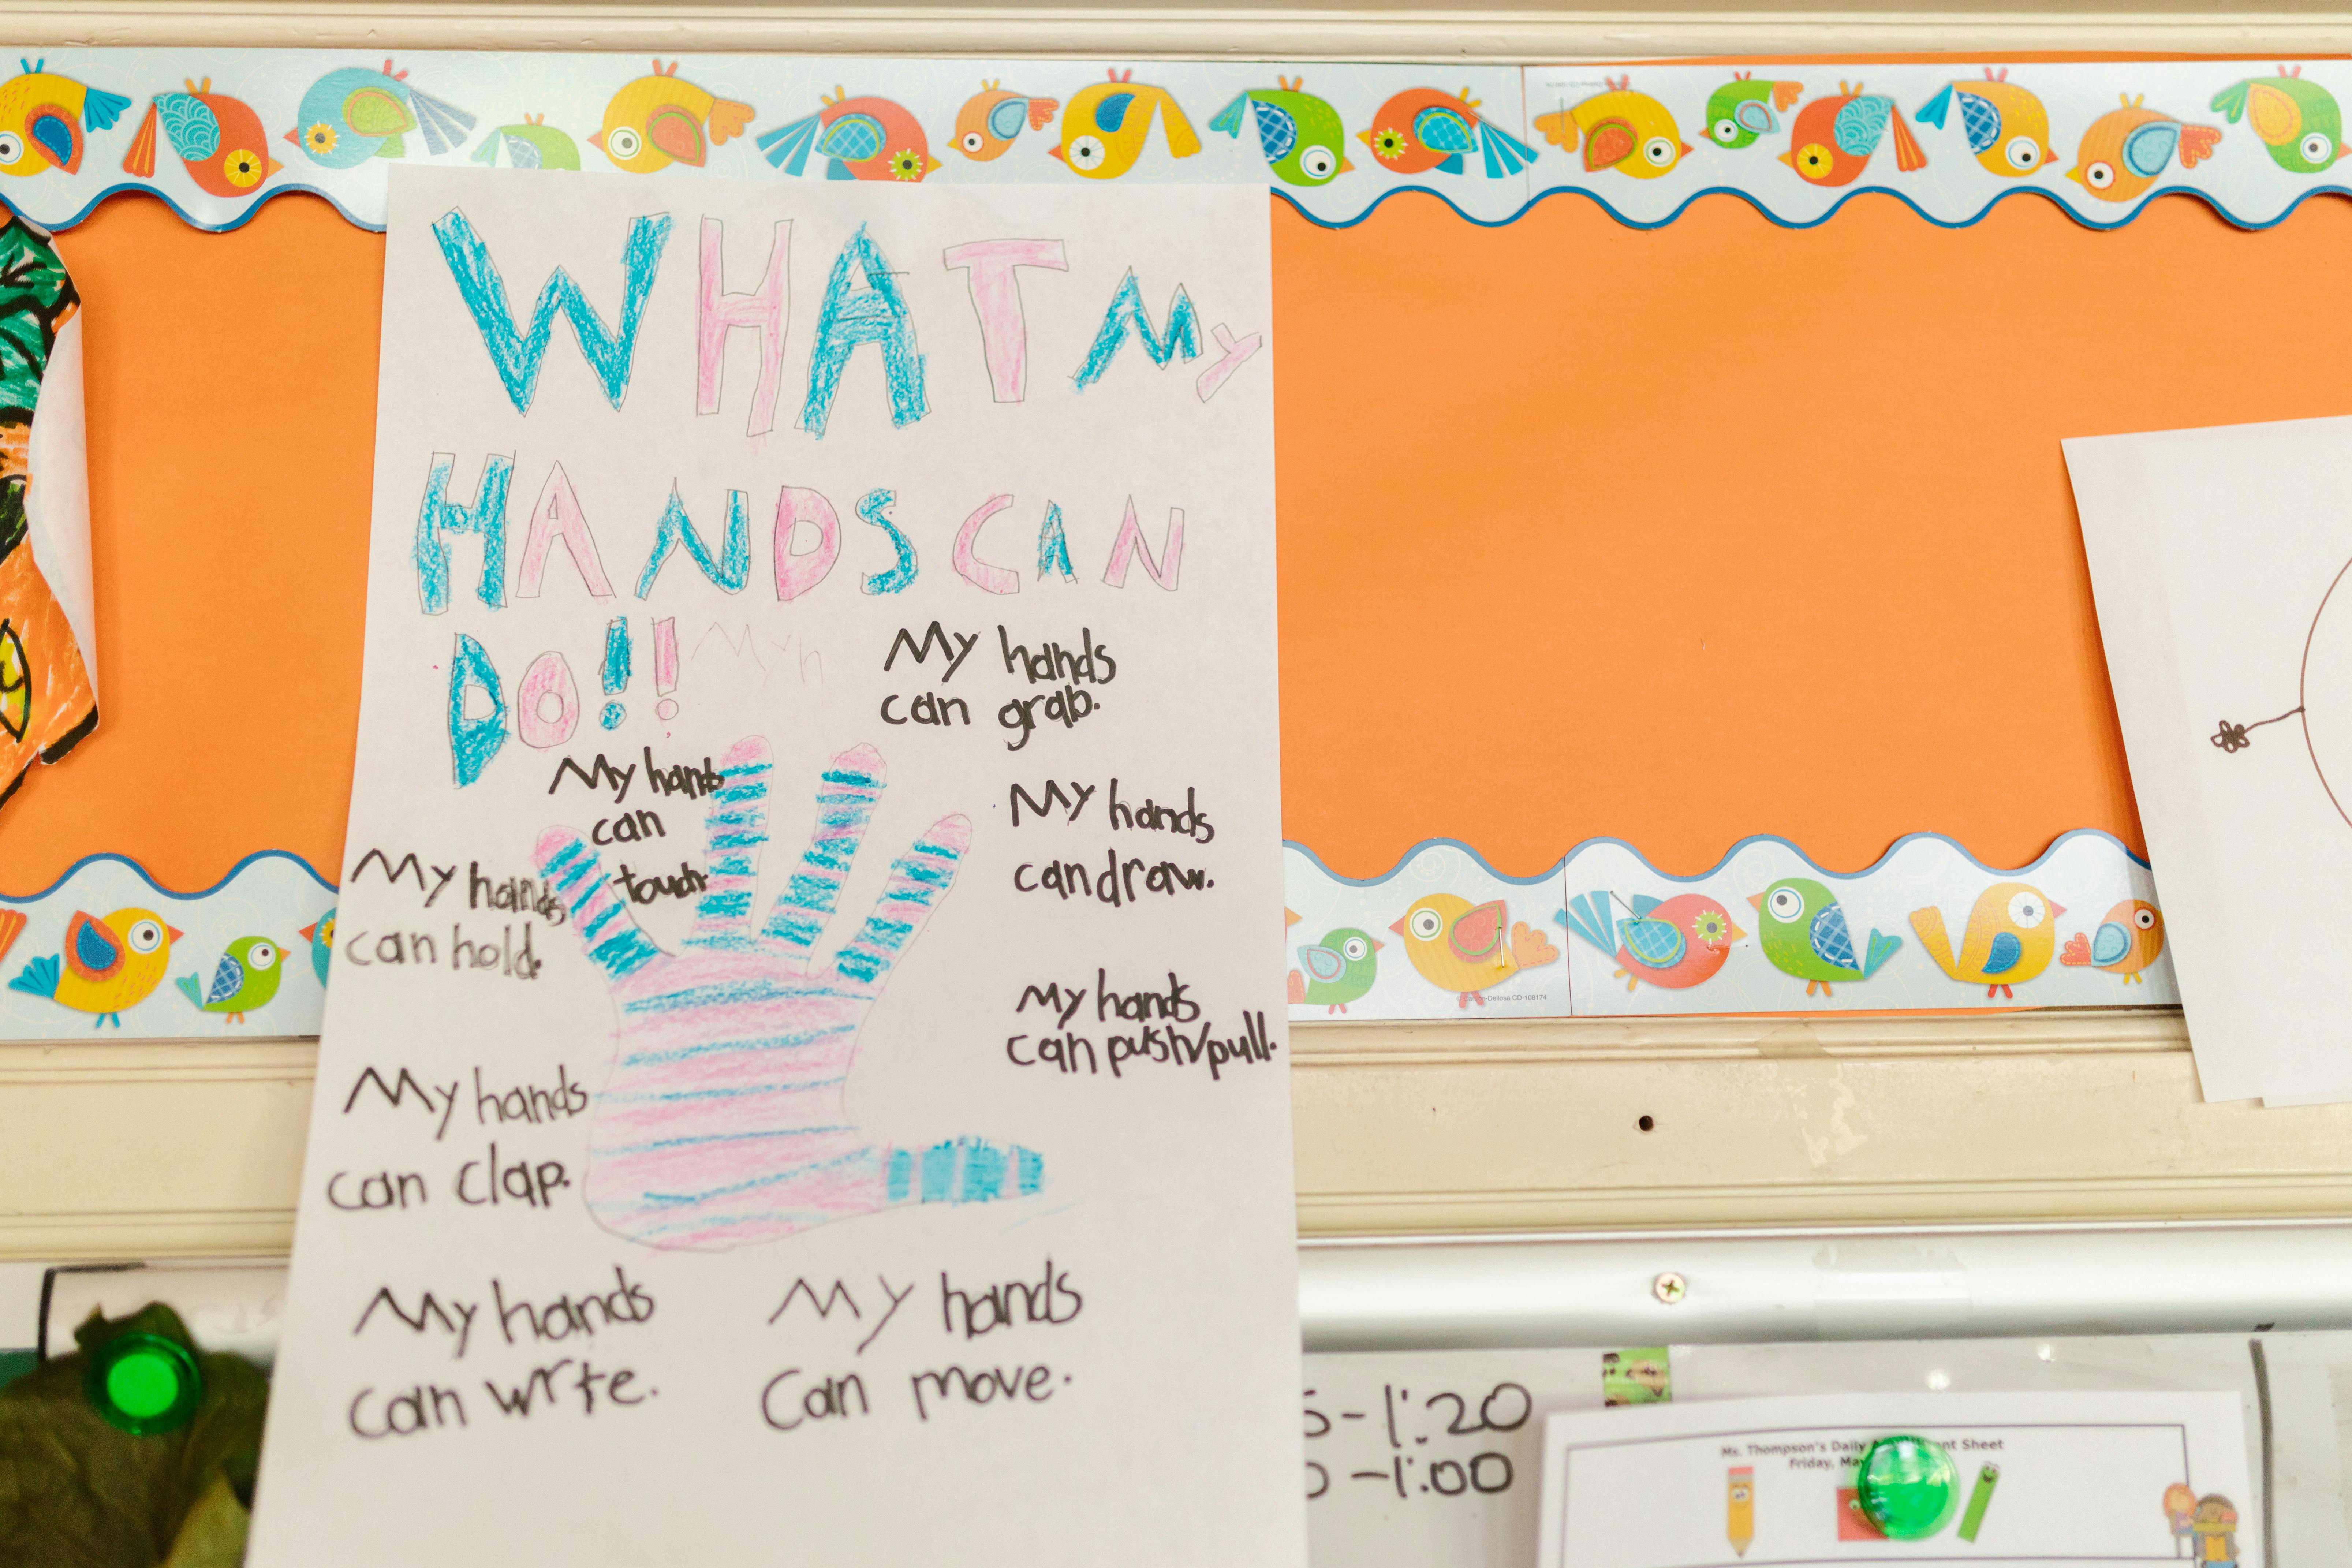 WHAT My
HANDS CAN
DO!!
Myh
My hands
can grab.
My hands
can
touch.
My hands
can draw.
My hands
can hold.
My hands
can push/pull.
My hands
can clap.
My hands
can write.
My hands
can move.
-1:20
-1:00
Ms. Thompson's Daily Sheet
Friday,
CD-108174